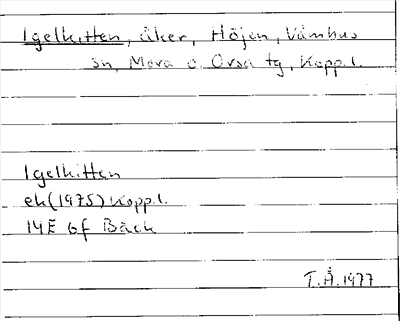 Igelkitten, åker, Höjen, Våmhus
sn, Mora o. Orsa tg, Kopp.l.
Igelkitten
ek(1975) Kopp.l.
14E 6f Bäck
T.Å. 1977